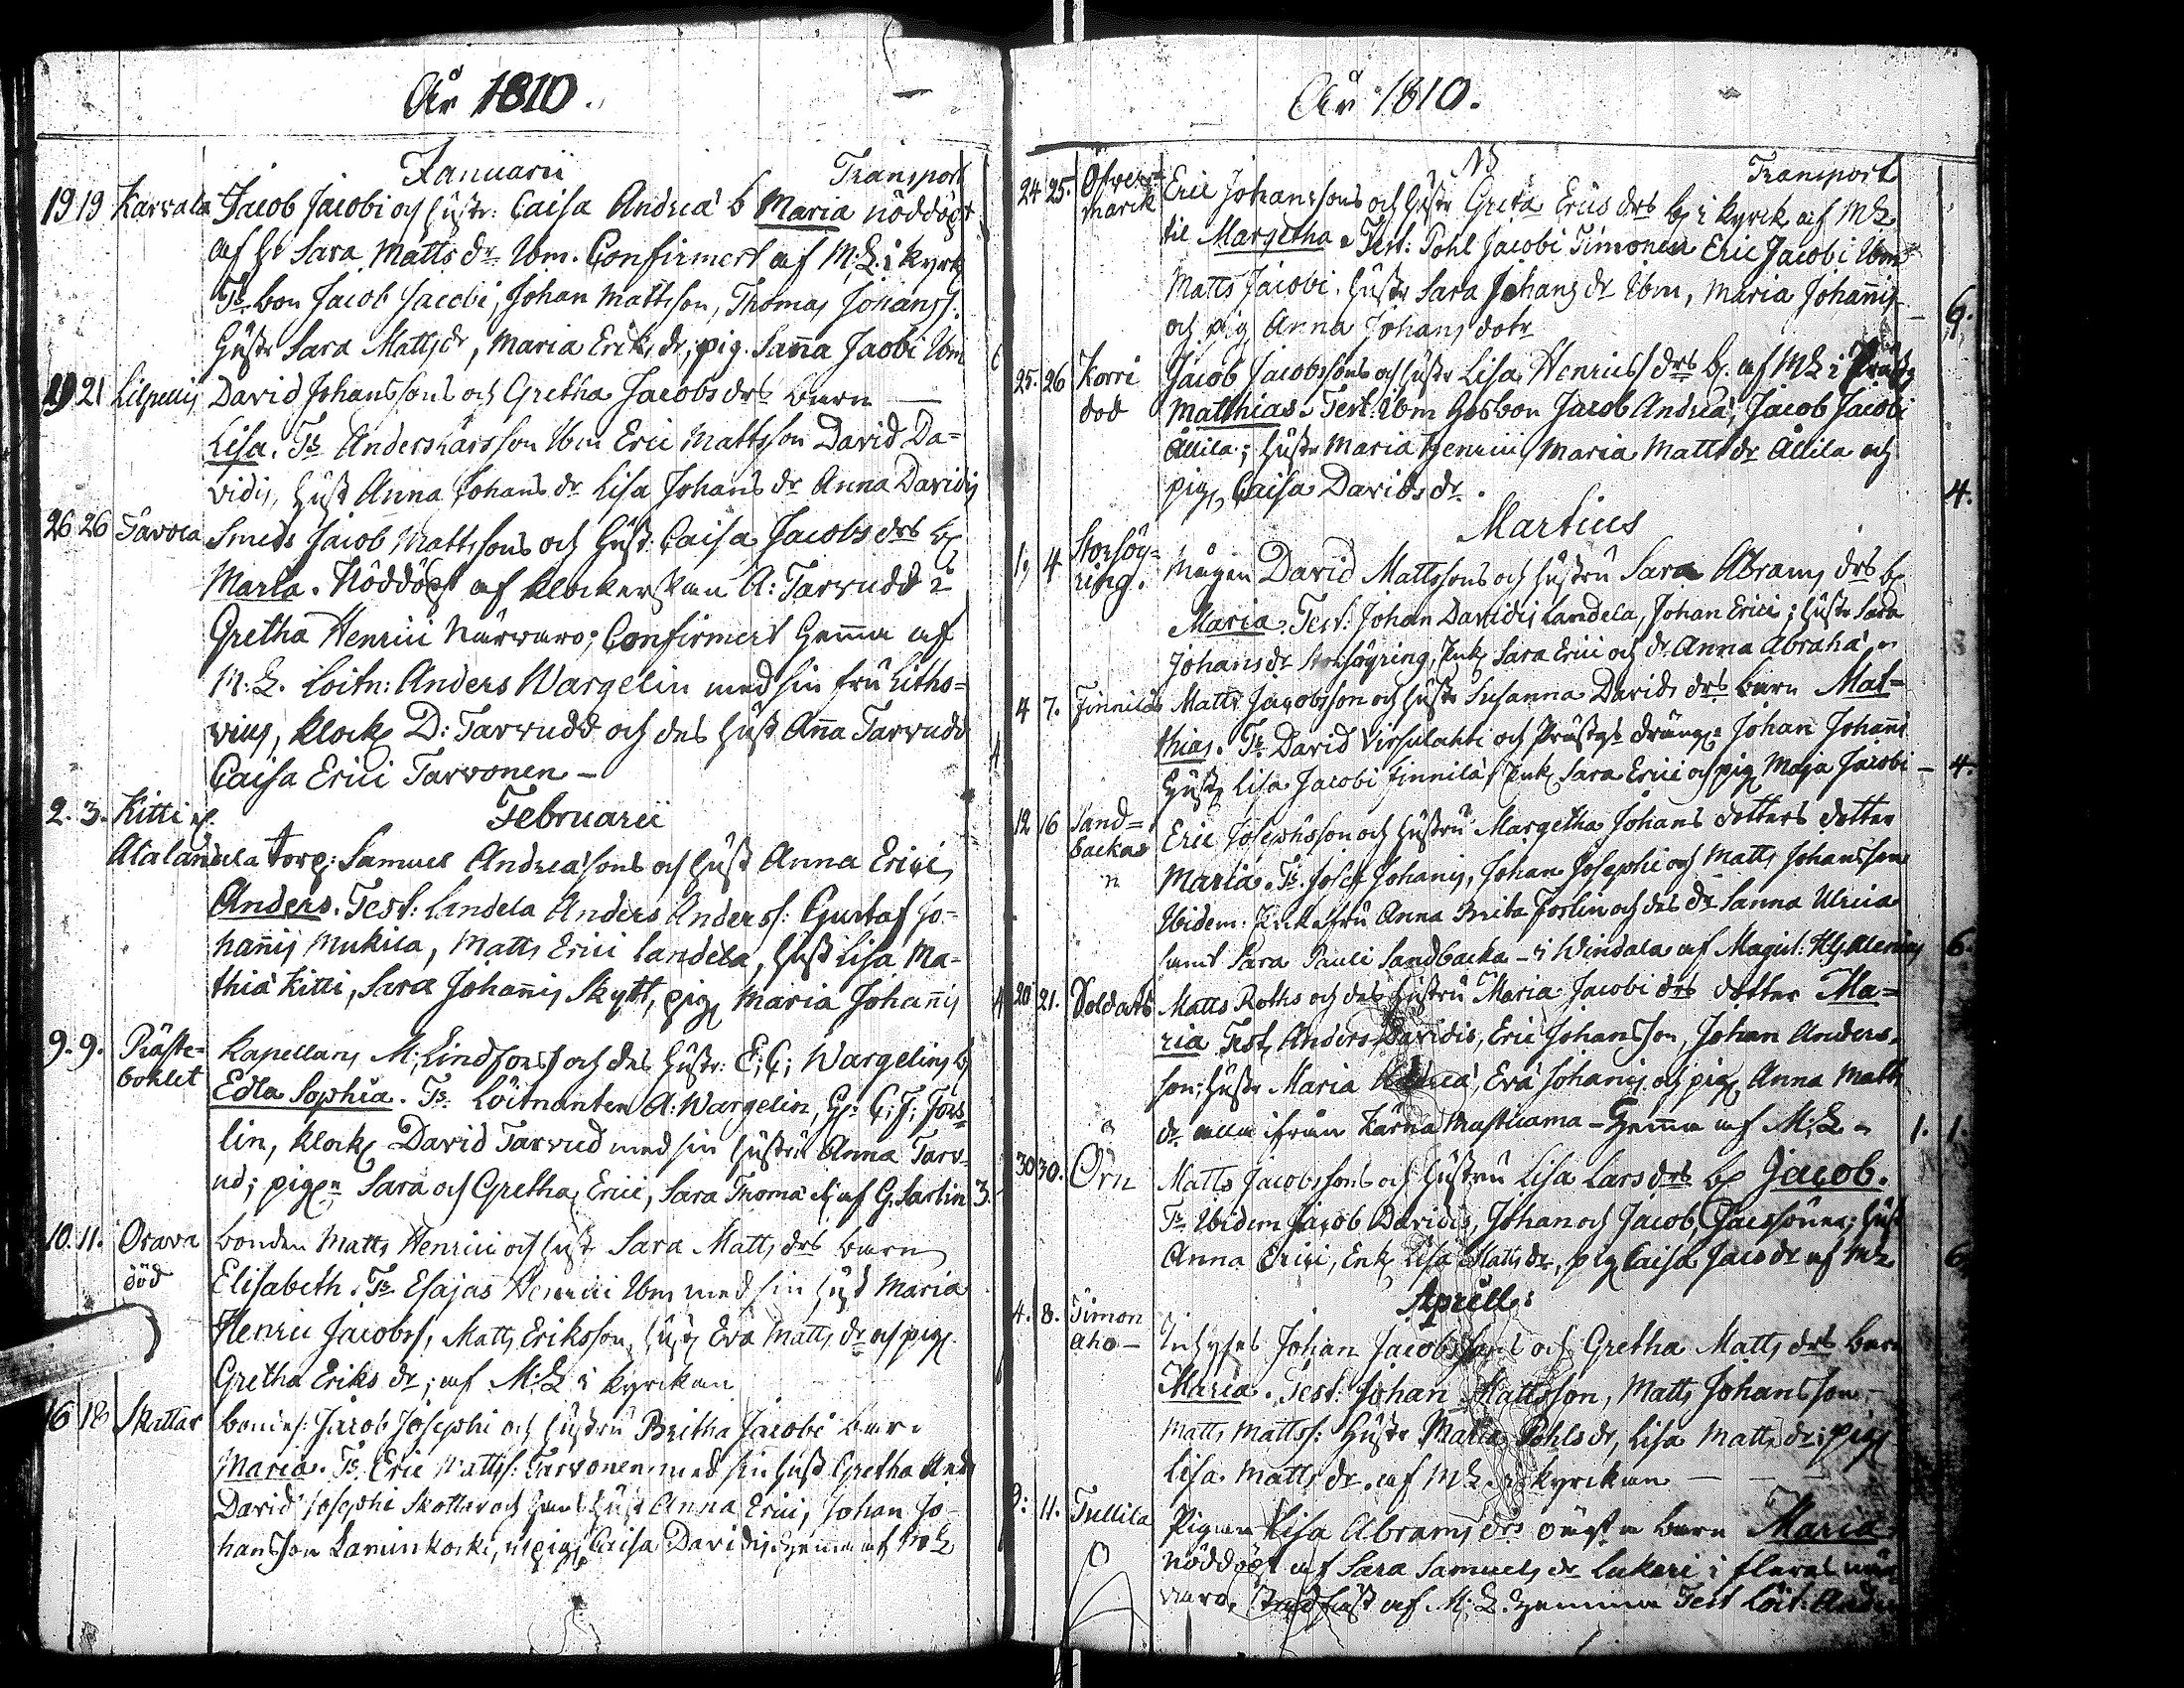 År 1810.
Januarii Transport
19 19 Karvala Jacob Jacobi och hustr: Caisa Andreæ b Maria nöddöpt
af H. Sara Matts dr Ibm. Confirmert af M:L: i kyrk
Ts. bon Jacob Jacobi, Johan Mattsson, Thomas Johanss:
Hustr Sara Mattsdr, Maria Eriks dr, pig. Sanna Jacobi Ibm
19 21 David Johanssons och Gretha Jacobs drs barn
Lisa. Ts Anders Ibm Eric Mattsson David Da=
vidis, Hust Anna Johans dr Lisa Johans dr Anna Davidis
26 26 Smeds Jacob Mattssons och Hust: Caisa Jacobs drs b
Maria. Nöddöpt af klockerskan A: Tarvudd i
Gretha Henrici närvaro; Confirmert hemma af
M: L. Loitn: Anders Wargelin med sin fru Litho=
vius, klock D: Tarvudd och des hust Anna Tarvudd
Caisa Erici Tarvonen –
Februarii
2. 3. Kitti
torp: Samuel Andreæsons och hust Anna Erici
Anders. Test: Landela Anders Anderss: Gustaf Jo-
hannis Mukila, Matts Erici Landela, Hust Lisa Ma-
thiæ Kitti, Sara Johannis Skytt, pig Maria Johannis
9. 9. Präste=
bohlet
Kapellans M: Lindfors och des Hustr: E: C: Wargelins b
Edla Sophia. Ts. Löitnanten A: Wargelin, C: F: Fors=
lin, klock David Tarvud med sin hustru Anna Tarv-
ud; pign Sara och Gretha Erici, Sara Thomæ af G. Sarlin 3.
10. 11. Orava
död
bonden Matts Henrici och hust Sara Matts drs barn
Elisabeth. Ts Esajas Henrici Ibm med sin hust Maria
Henric Jacobss, Matts Eriksson, hust Eva Matts dr och pig
Gretha Eriks dr; af M: L i kyrckan
16 18 Skattar bondes: Jacob Josephi och hustru Britha Jacobi barn
Maria. Ts Eric Mattss: Tarvonen med sin hust Gretha And
David Josephi Skattar och hans hust Anna Erici, Johan Jo-
hansson och pig Caisa Davidis hemma af M L
År 1810.
Transport
24 25. Öfver=
marck
Eric Johanssons och hustr Greta Erics drs b i kyrck af M L
til Margetha. Test: Pohl Jacobi Timonen Eric Jacobi Ibm
Matts Jacobi. hustr Sara Johans dr Ibm, Maria Johannis
och pig Anna Johans dotr 6.
25. 26 Korri
död
Jacob Jacobssons och hustr Lisa Henrics drs b. af M L i
Matthias. Test: Ibm bon Jacob Andreæ, Jacob Jacobi
Allila; hustr Maria Henrici, Maria Matts dr Allila och
pig Caisa Davids dr. 4.
Martius
1. 4 Storsög=
ring. Mågen David Mattssons och hustru Sara Abrams drs b
Maria. Test: Johan Davidis Landela, Johan Erici; hustr Sara
Johansdr Storsögring, Enk Sara Erici och dr Anna Abrahæ
4 7. Finnilä Matts Jacobsson och hustr Susanna Davids drs barn Mat=
thias. Ts David Virsulahti och Prästgs dräng: Johan Johans
Hust Lisa Jacobi Finnilä, Enk Sara Erici och pig Maja Jacobi – 4.
12 16 Sand=
backa
Eric Josephsson och hustru Margetha Johans dotters dotter
Maria. Ts. Josef Johannis, Johan Josephi och Matts Johansson
Ibidem. Enkefru Anna Brita Forslin och des dr Sanna Ulrica
samt Sara Pauli Sandbacka – i Windala af Magist: 6.
20 21. Soldats Matts Roths och des hustru Maria Jacobi drs dotter Ma=
ria Test, Anders Davidis, Eric Johansson, Johan Anders-
son; hustr Maria Andreæ, Eva Johannis och pig Anna Matts
dr alla ifrån – Hemma af M: L – 1. 1.
30 30. Örn Matts Jacobssons och hustru Lisa Lars drs b Jacob.
Ts Ibidem Jacob Davidis, Johan och Jacob hust
Anna Erici, Enk Lisa Matts dr, pig Caisa Jacs dr af M L 6.
Aprill:
4. 8. Timon
aho –
Inhyses Johan Jacobssons och Gretha Matts drs barn
Maria. Test: Johan Mattsson, Matts Johansson –
Matts Mattss: hustr Maria Pohls dr, Lisa Matts dr, pig
Lisa Matts dr. af M L i kyrckan – – –
9: 11. Tullila Pigan Lisa Abrams drs oägta barn Maria
nöddöpt af Sara Samuels dr i fleras när
varo, af M: L. hemma Test Löit: Anders